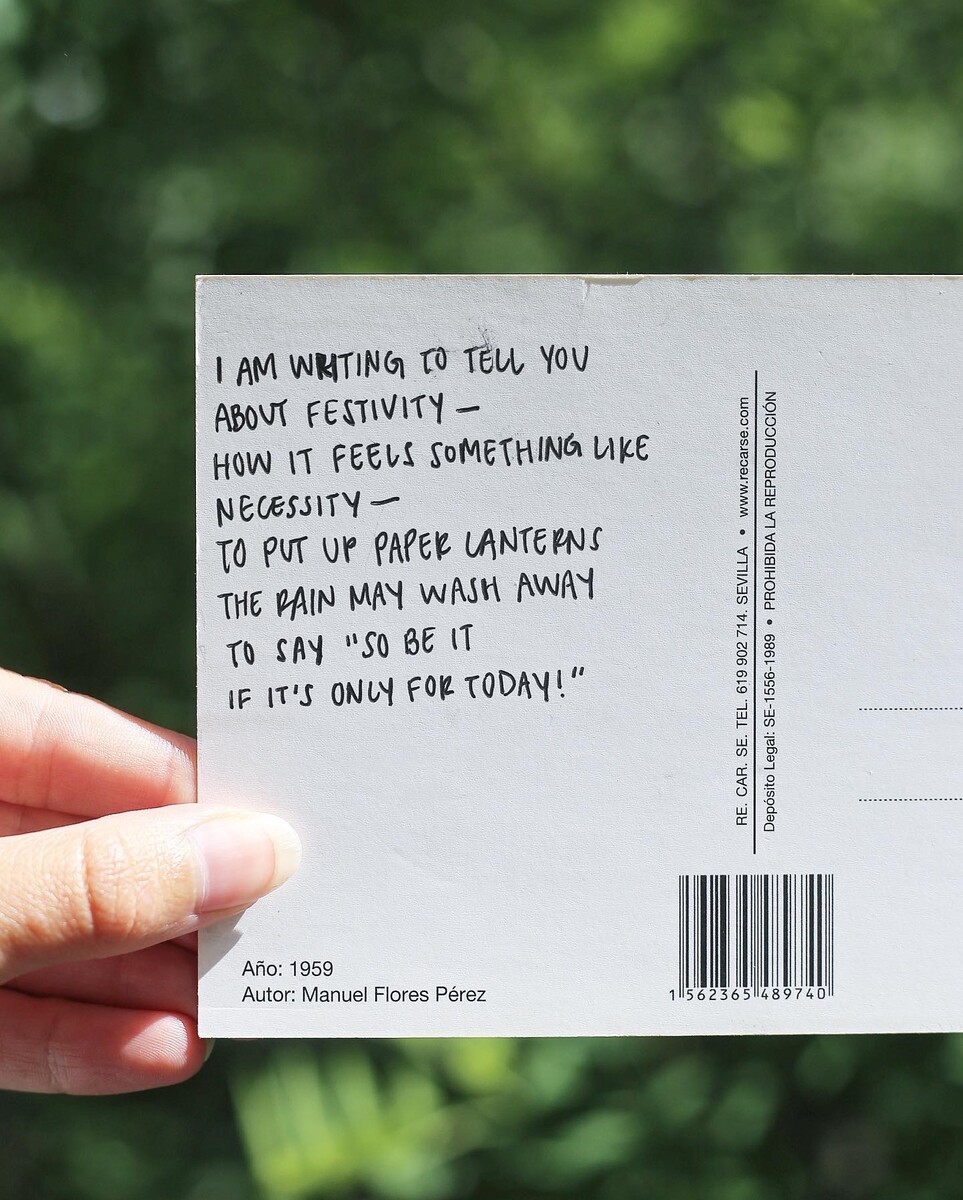 I AM WRITING TO TELL YOU
ABOUT FESTIVITY —
HOW IT FEELS SOMETHING LIKE
NECESSITY —
TO PUT UP PAPER LANTERNS
THE RAIN MAY WASH AWAY
TO SAY "SO BE IT
IF IT'S ONLY FOR TODAY!"
Año: 1959
Autor: Manuel Flores Pérez
RE. CAR. SE. TEL. 619 902 714. SEVILLA • www.recarse.com
Depósito Legal: SE-1556-1989 • PROHIBIDA LA REPRODUCCIÓN
1 562365 489740